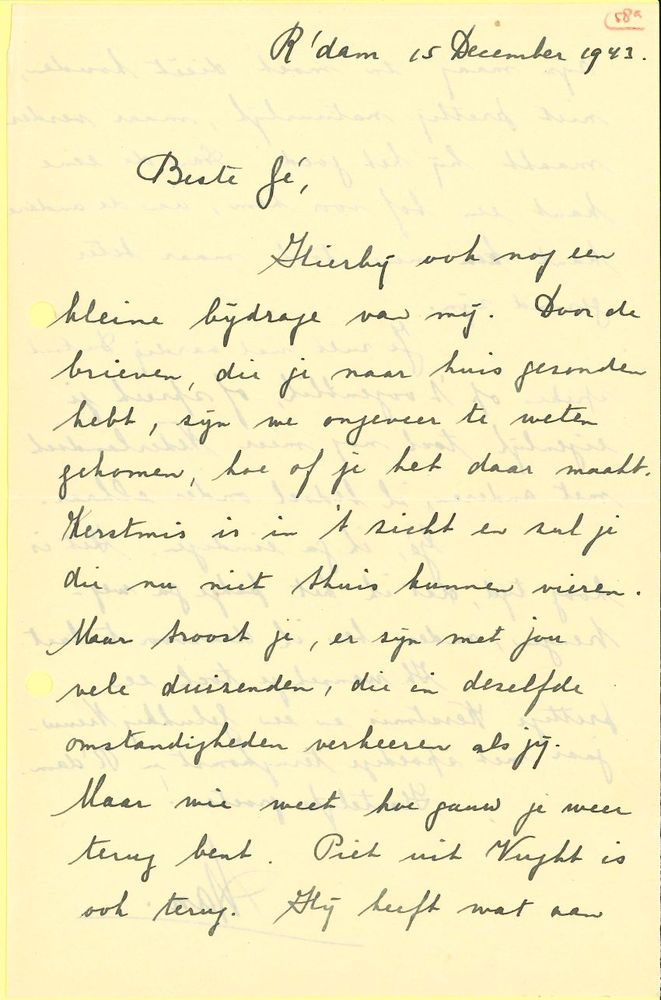 58a
R'dam 15 December 1943.
Beste Gé,
Hierbij ook nog een
kleine bijdrage van mij. Door de
brieven, die je naar huis gezonden
hebt, zijn we ongeveer te weten
gekomen, hoe of je het daar maakt.
Kerstmis is in 't zicht en zul je
die nu niet thuis kunnen vieren.
Maar troost je, er zijn met jou
vele duizenden, die in dezelfde
omstandigheden verkeeren als jij.
Maar wie weet hoe gauw je weer
terug bent. Piet uit Vught is
ook terug. Hij heeft wat aan